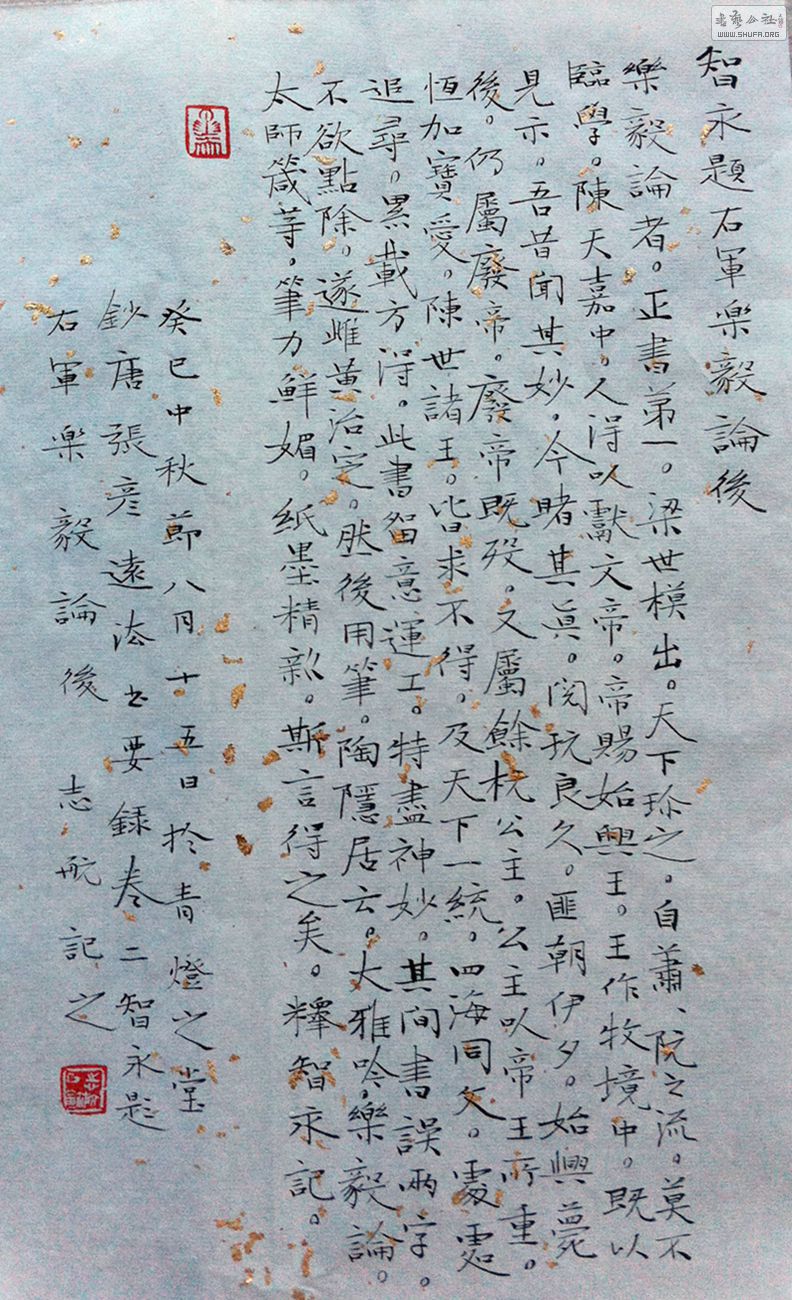 智永題右軍樂毅論後
樂毅論者。正書第一。梁世模出。天下珍之。自蕭、阮之流。莫不
臨學。陳天嘉中。人得以獻文帝。帝賜始興王。王作牧境中。既以
見示。吾昔聞其妙。今睹其真。閱玩良久。匪朝伊夕。始興薨
後。仍屬廢帝。廢帝既歿。又屬餘杭公主。公主以帝王所重。
恆加寶愛。陳世諸王。皆求不得。及天下一統。四海同文。處處
追尋。累載方得。此書留意運工。特盡神妙。其間書誤兩字。
不欲點除。遂雌黃治定。然後用筆。陶隱居云。大雅吟。樂毅論。
太師箴等。筆力鮮媚。紙墨精新。斯言得之矣。釋智永記。
癸巳中秋節八月十五日於青燈之堂
鈔唐張彥遠法書要錄卷二智永題
右軍樂毅論後 志航記之
WWW.SHUFA.ORG